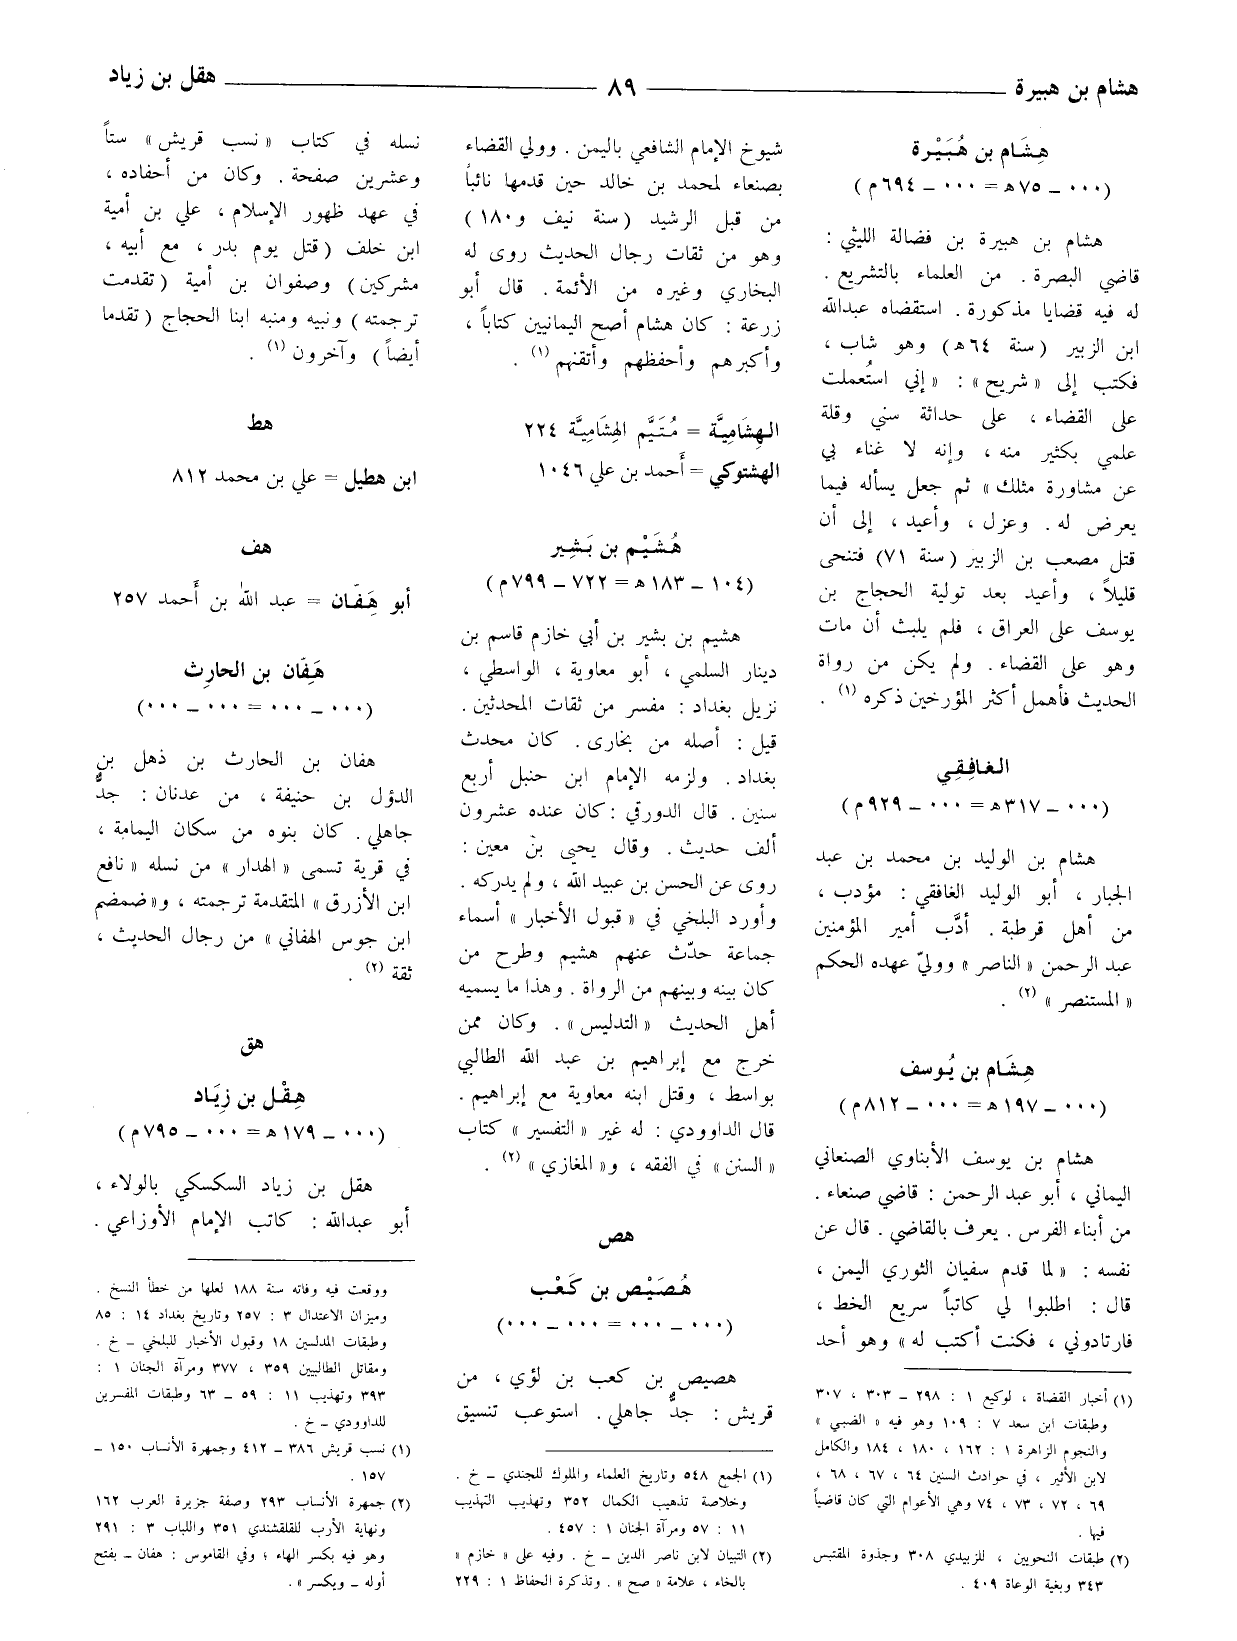 هشام بن هبيرة
٨٩
هقل بن زياد
هِشَام بن هُبَيْرة
(٠٠٠ ـ ٧٥ه = ٠٠٠ ـ ٦٩٤م)
هشام بن هبيرة بن فضالة الليثي :
قاضي البصرة . من العلماء بالتشريع .
له فيه قضايا مذكورة . استقضاه عبدالله
ابن الزبير (سنة ٦٤ه) وهو شاب ،
فكتب إلى « شريح » : « إني استُعملت
على القضاء ، على حداثة سني وقلة
علمي بكثير منه ، وإنه لا غناء بي
عن مشاورة مثلك » ثم جعل يسأله فيما
يعرض له . وعزل ، وأعيد ، إلى أن
قتل مصعب بن الزبير (سنة ٧١) فتنحى
قليلاً ، وأعيد بعد تولية الحجاج بن
يوسف على العراق ، فلم يلبث أن مات
وهو على القضاء . ولم يكن من رواة
الحديث فأهمل أكثر المؤرخين ذكره (١) .
الغافِقِي
(٠٠٠ ـ ٣١٧ه = ٠٠٠ ـ ٩٢٩م)
هشام بن الوليد بن محمد بن عبد
الجبار ، أبو الوليد الغافقي : مؤدب ،
من أهل قرطبة . أدَّب أمير المؤمنين
عبد الرحمن « الناصر » ووليّ عهده الحكم
« المستنصر » (٢) .
هِشَام بن يُوسف
(٠٠٠ ـ ١٩٧ه = ٠٠٠ ـ ٨١٢م)
هشام بن يوسف الأبناوي الصنعاني
اليماني ، أبو عبد الرحمن : قاضي صنعاء .
من أبناء الفرس . يعرف بالقاضي . قال عن
نفسه : « لما قدم سفيان الثوري اليمن ،
قال : اطلبوا لي كاتباً سريع الخط ،
فارتادوني ، فكنت أكتب له » وهو أحد
(١) أخبار القضاة ، لوكيع ١ : ٢٩٨ ـ ٣٠٣ ، ٣٠٧
وطبقات ابن سعد ٧ : ١٠٩ وهو فيه « الضبي »
والنجوم الزاهرة ١ : ١٦٢ ، ١٨٠ ، ١٨٤ والكامل
لابن الأثير ، في حوادث السنين ٦٤ ، ٦٧ ، ٦٨ ،
٦٩ ، ٧٢ ، ٧٣ ، ٧٤ وهي الأعوام التي كان قاضياً
فيها .
(٢) طبقات النحويين ، للزبيدي ٣٠٨ وجذوة المقتبس
٣٤٣ وبغية الوعاة ٤٠٩ .
شيوخ الإمام الشافعي باليمن . وولي القضاء
بصنعاء لمحمد بن خالد حين قدمها نائباً
من قبل الرشيد (سنة نيف و١٨٠)
وهو من ثقات رجال الحديث روى له
البخاري وغيره من الأئمة . قال أبو
زرعة : كان هشام أصح اليمانيين كتاباً ،
وأكبرهم وأحفظهم وأتقنهم (١) .
الهِشَامِيَّة = مُتَيَّم الهِشَامِيَّة ٢٢٤
الهشتوكي = أَحمد بن علي ١٠٤٦
هُشَيْم بن بَشِير
(١٠٤ ـ ١٨٣ه = ٧٢٢ ـ ٧٩٩م)
هشيم بن بشير بن أبي خازم قاسم بن
دينار السلمي ، أبو معاوية ، الواسطي ،
نزيل بغداد : مفسر من ثقات المحدثين .
قيل : أصله من بخارى . كان محدث
بغداد . ولزمه الإمام ابن حنبل أربع
سنين . قال الدورقي : كان عنده عشرون
ألف حديث . وقال يحيى بن معين :
روى عن الحسن بن عبيد الله ، ولم يدركه .
وأورد البلخي في « قبول الأخبار » أسماء
جماعة حدّث عنهم هشيم وطرح من
كان بينه وبينهم من الرواة . وهذا ما يسميه
أهل الحديث « التدليس » . وكان ممن
خرج مع إبراهيم بن عبد الله الطالبي
بواسط ، وقتل ابنه معاوية مع إبراهيم .
قال الداوودي : له غير « التفسير » كتاب
« السنن » في الفقه ، و« المغازي » (٢) .
هص
هُصَيْص بن كَعْب
(٠٠٠ ـ ٠٠٠ = ٠٠٠ ـ ٠٠٠)
هصيص بن كعب بن لؤي ، من
قريش : جدٌّ جاهلي . استوعب تنسيق
(١) الجمع ٥٤٨ وتاريخ العلماء والملوك للجندي ـ خ .
وخلاصة تذهيب الكمال ٣٥٢ وتهذيب التهذيب
١١ : ٥٧ ومرآة الجنان ١ : ٤٥٧ .
(٢) التبيان لابن ناصر الدين ـ خ . وفيه على « خازم »
بالخاء ، علامة « صح » . وتذكرة الحفاظ ١ : ٢٢٩
نسله في كتاب « نسب قريش » ستاً
وعشرين صفحة . وكان من أحفاده ،
في عهد ظهور الإسلام ، علي بن أمية
ابن خلف (قتل يوم بدر ، مع أبيه ،
مشركين) وصفوان بن أمية (تقدمت
ترجمته) ونبيه ومنبه ابنا الحجاج (تقدما
أيضاً) وآخرون (١) .
هط
ابن هطيل = علي بن محمد ٨١٢
هف
أبو هَفّان = عبد الله بن أَحمد ٢٥٧
هَفّان بن الحارِث
(٠٠٠ ـ ٠٠٠ = ٠٠٠ ـ ٠٠٠)
هفان بن الحارث بن ذهل بن
الدؤل بن حنيفة ، من عدنان : جدٌّ
جاهلي . كان بنوه من سكان اليمامة ،
في قرية تسمى « الهدار » من نسله « نافع
ابن الأزرق » المتقدمة ترجمته ، و« ضمضم
ابن جوس الهفاني » من رجال الحديث ،
ثقة (٢) .
هق
هِقْل بن زِيَاد
(٠٠٠ ـ ١٧٩ه = ٠٠٠ ـ ٧٩٥م)
هقل بن زياد السكسكي بالولاء ،
أبو عبدالله : كاتب الإمام الأوزاعي .
ووقعت فيه وفاته سنة ١٨٨ لعلها من خطأ النسخ .
وميزان الاعتدال ٣ : ٢٥٧ وتاريخ بغداد ١٤ : ٨٥
وطبقات المدلسين ١٨ وقبول الأخبار للبلخي ـ خ .
ومقاتل الطالبيين ٣٥٩ ، ٣٧٧ ومرآة الجنان ١ :
٣٩٣ وتهذيب ١١ : ٥٩ ـ ٦٣ وطبقات المفسرين
للداوودي ـ خ .
(١) نسب قريش ٣٨٦ ـ ٤١٢ وجمهرة الأنساب ١٥٠ ـ
١٥٧ .
(٢) جمهرة الأنساب ٢٩٣ وصفة جزيرة العرب ١٦٢
ونهاية الأرب للقلقشندي ٣٥١ واللباب ٣ : ٢٩١
وهو فيه بكسر الهاء ؛ وفي القاموس : هفان ـ بفتح
أوله ـ ويكسر » .